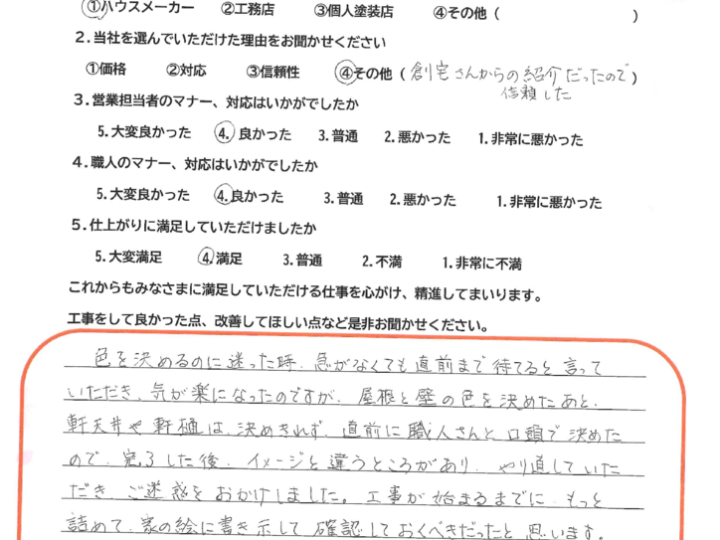 ①ハウスメーカー ②工務店 ③個人塗装店 ④その他（ ）
2.当社を選んでいただけた理由をお聞かせください
①価格 ②対応 ③信頼性 ④その他（創宅さんからの紹介だったので）
信頼した
3.営業担当者のマナー、対応はいかがでしたか
5.大変良かった 4.良かった 3.普通 2.悪かった 1.非常に悪かった
4.職人のマナー、対応はいかがでしたか
5.大変良かった 4.良かった 3.普通 2.悪かった 1.非常に悪かった
5.仕上がりに満足していただけましたか
5.大変満足 4.満足 3.普通 2.不満 1.非常に不満
これからもみなさまに満足していただける仕事を心がけ、精進してまいります。
工事をして良かった点、改善してほしい点など是非お聞かせください。
色を決めるのに迷った時、急がなくても直前まで待てると言って
いただき、気が楽になったのですが、屋根と壁の色を決めたあと、
軒天井や軒樋は、決めきれず、直前に職人さんと口頭で決めた
ので、完了した後、イメージと違うところがあり、やり直していた
だき、ご迷惑をおかけしました。工事が始まるまでに、もっと
詰めて、家の絵に書き示して確認しておくべきだったと思います。